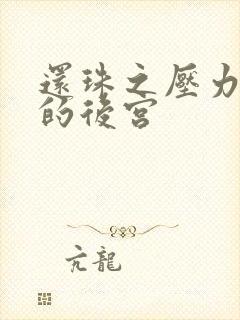 還珠之壓力
的後宮
亢龍